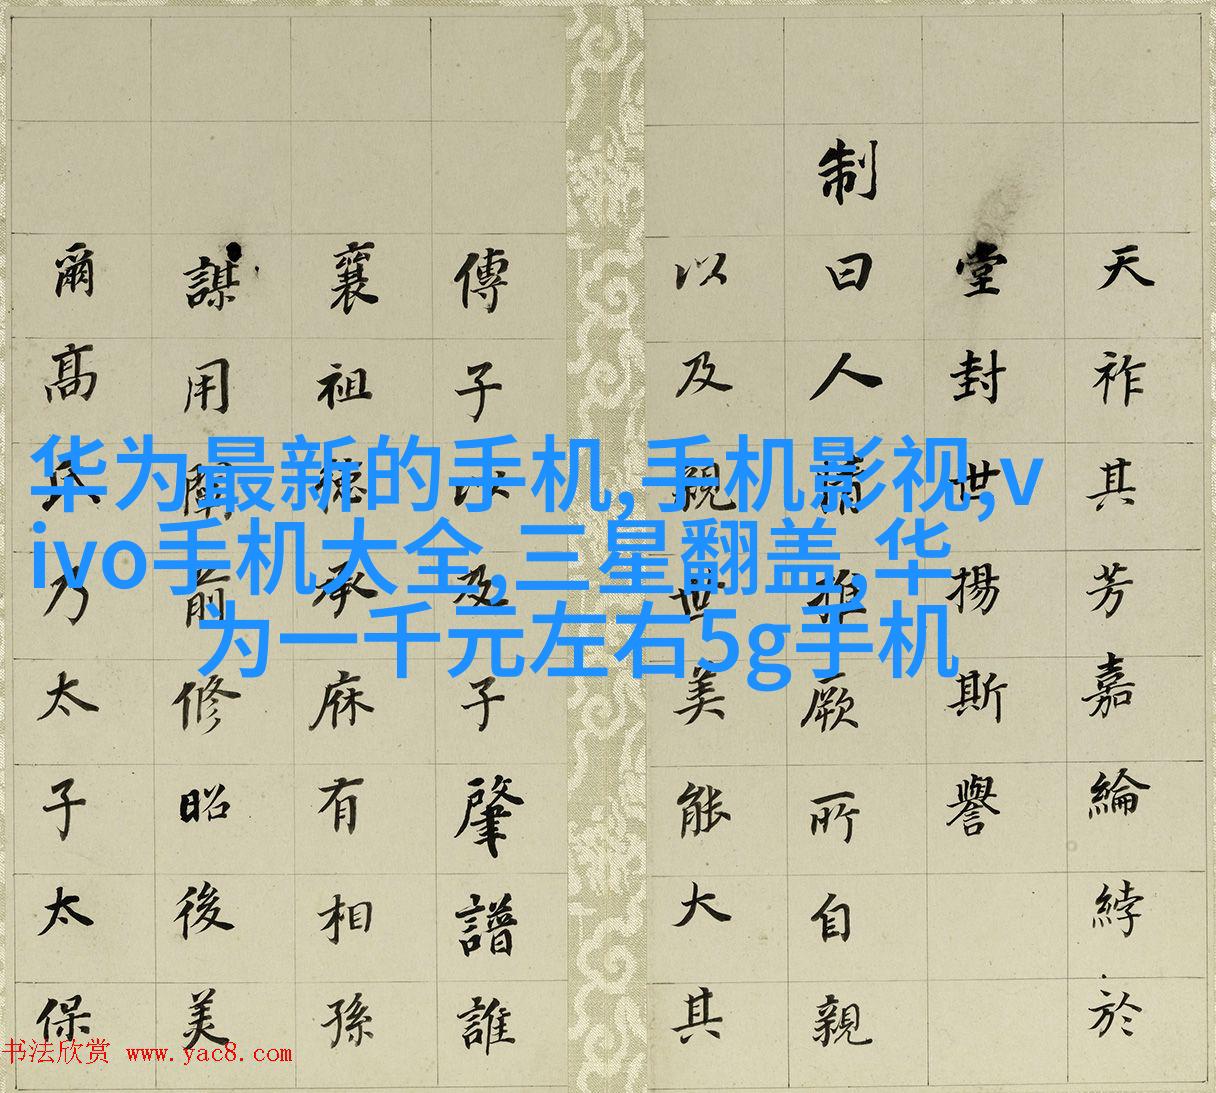 华为最新的手机,手机影视,v
ivo手机大全,三星翻盖,华
为一千元左右5g手机
天祚其芳嘉綸綍於
堂封世揚斯譽
制曰人推厥所自親
以及親世美能大其
傳子以及子肇譜誰
襄祖德承庥有相孫
謀用闡前修昭後美
爾高氏乃太子太保
书法欣赏 www.yac8.com